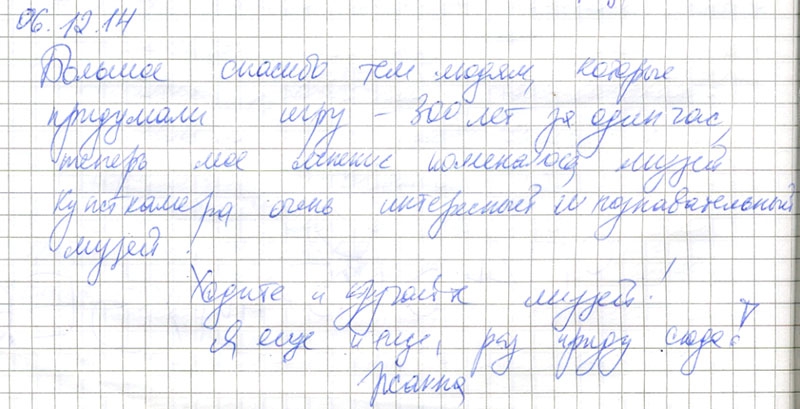 06.12.14
Большое спасибо тем людям, которые
придумали игру – 300 лет за один час,
теперь мое мнение поменялось, музей
Кунсткамера очень интересный и познавательный
музей!
Ходите и изучайте музей!
Я еще и еще, раз приду сюда